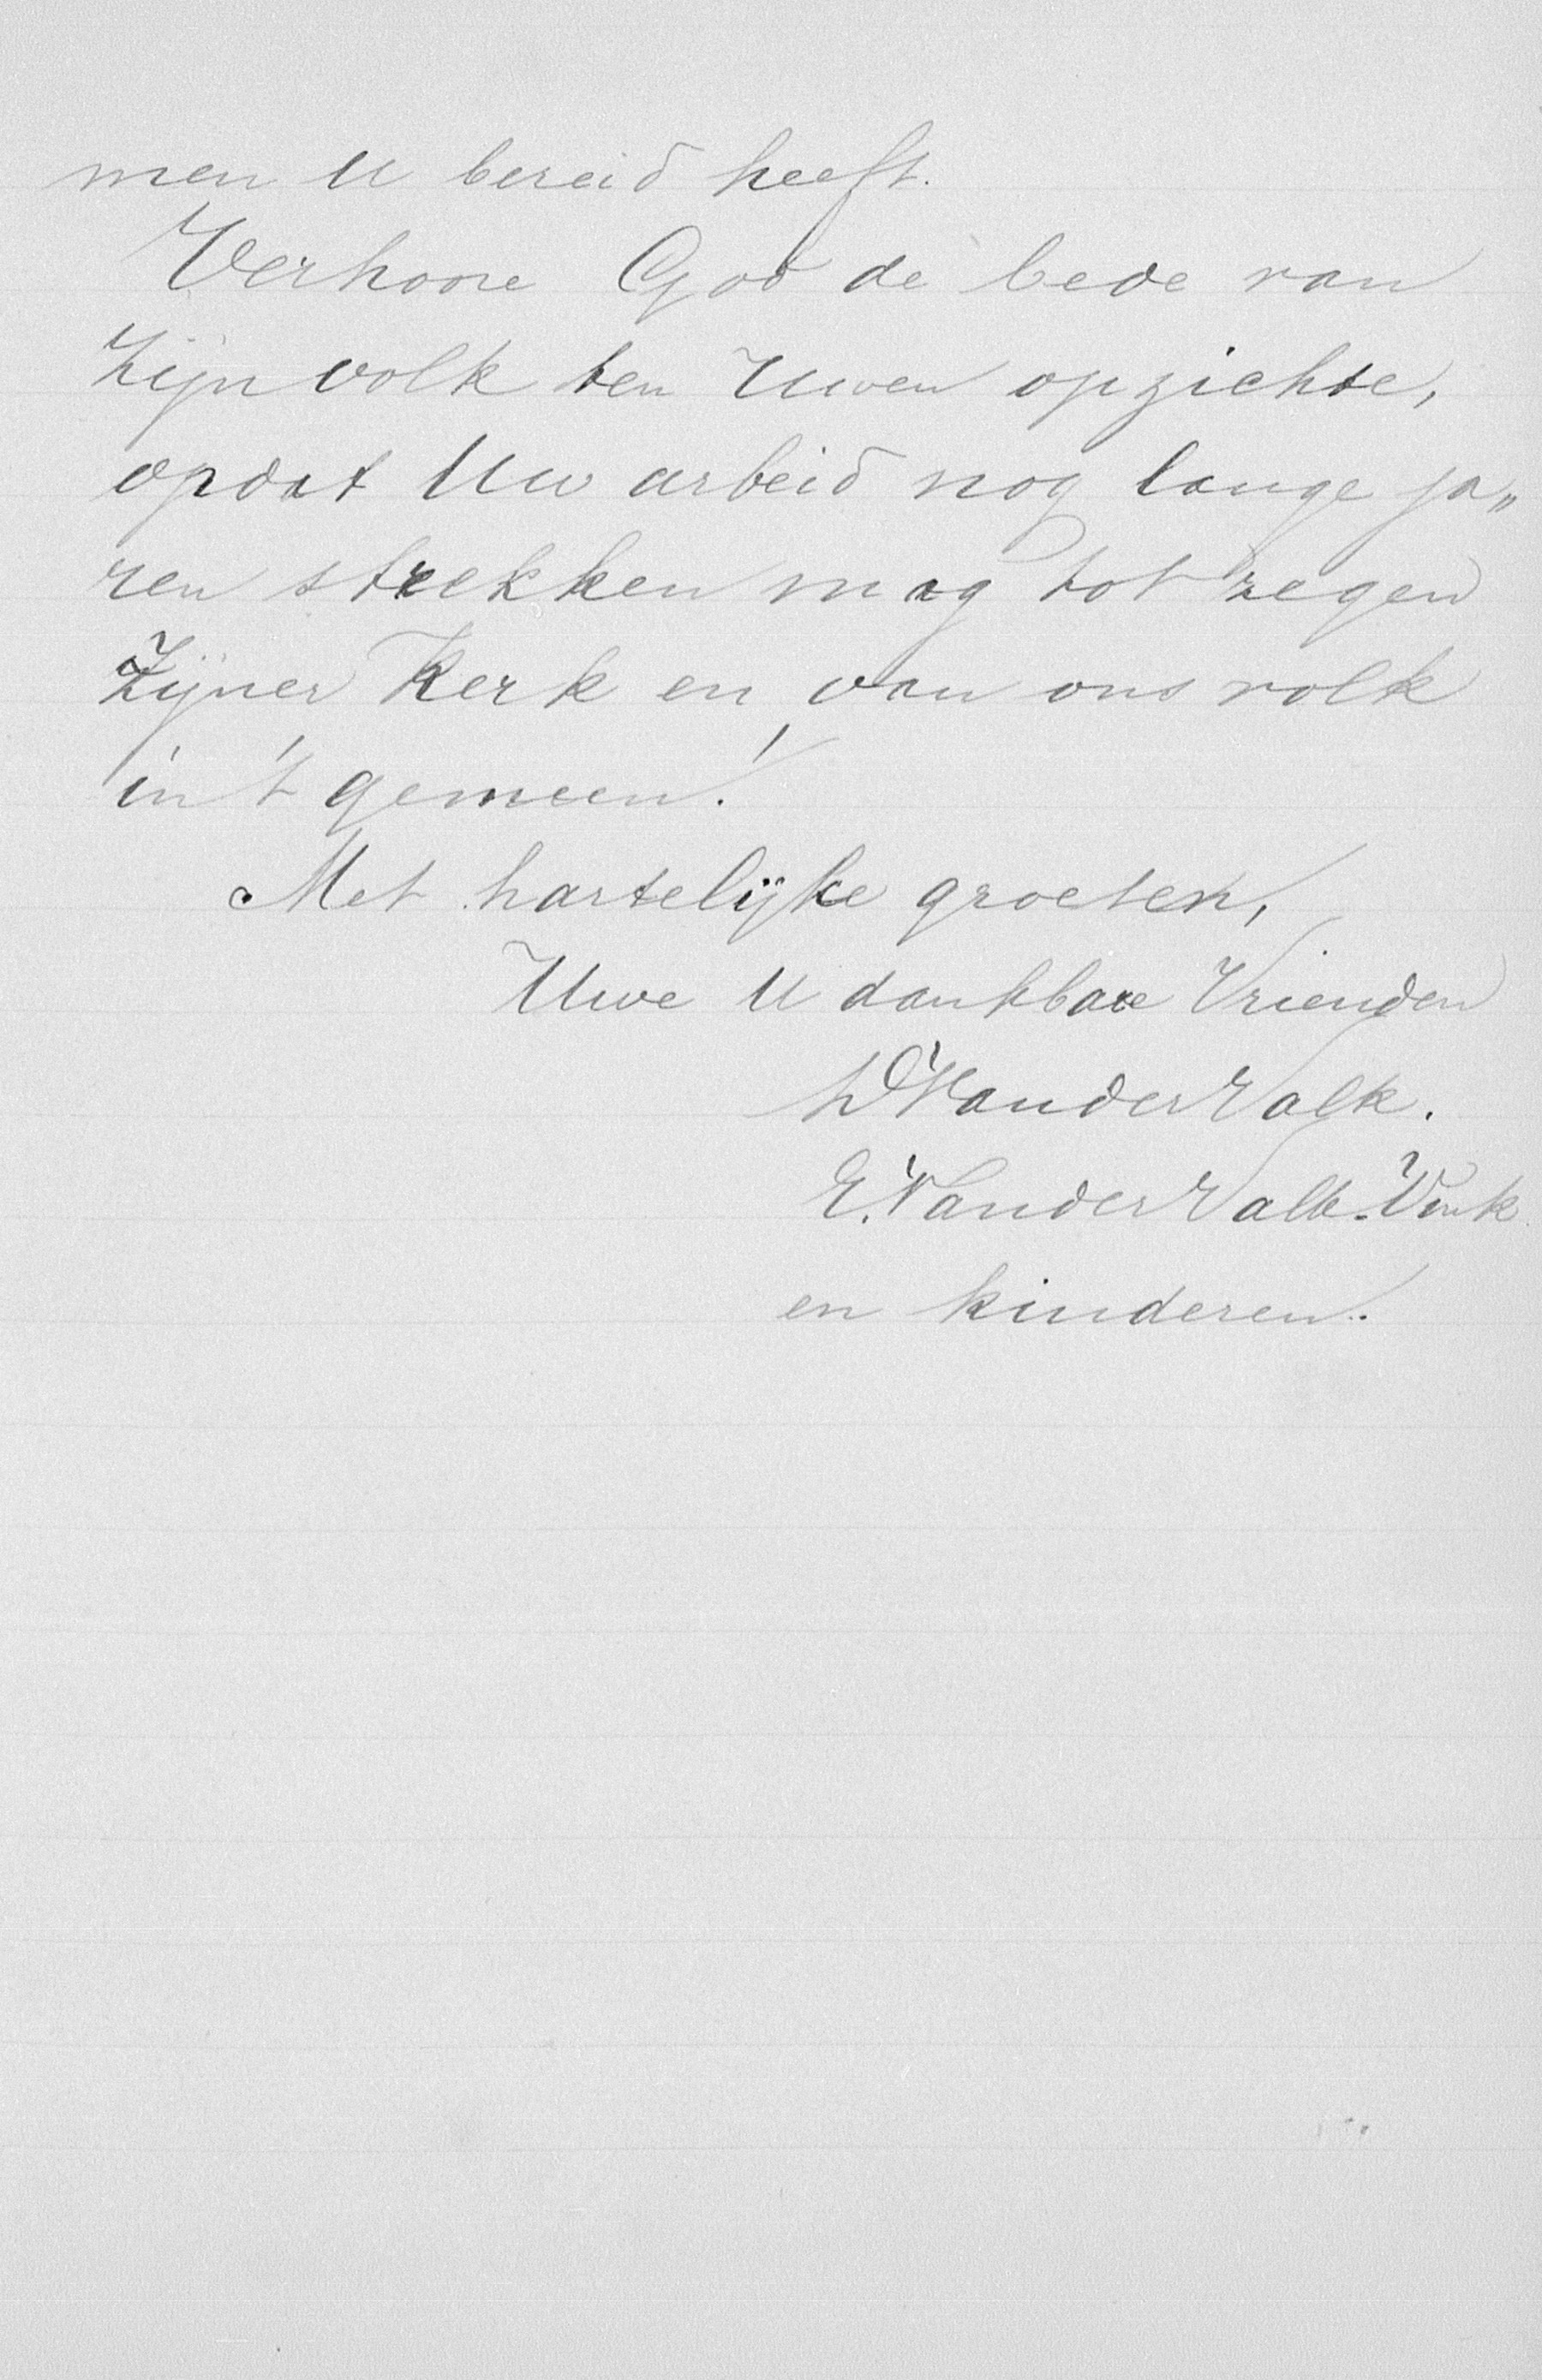 men U bereid heeft.
Verhoore God de bede van
Zijn volk ten Uwen opzichte,
opdat Uw arbeid nog lange ja„
ren strekken mag tot zegen
Zijner Kerk en van ons volk
in 't gemeen!
Met hartelijke groeten,
Uwe U dankbare Vrienden
W VanderValk.
E. VanderValk-Vink
en kinderen.